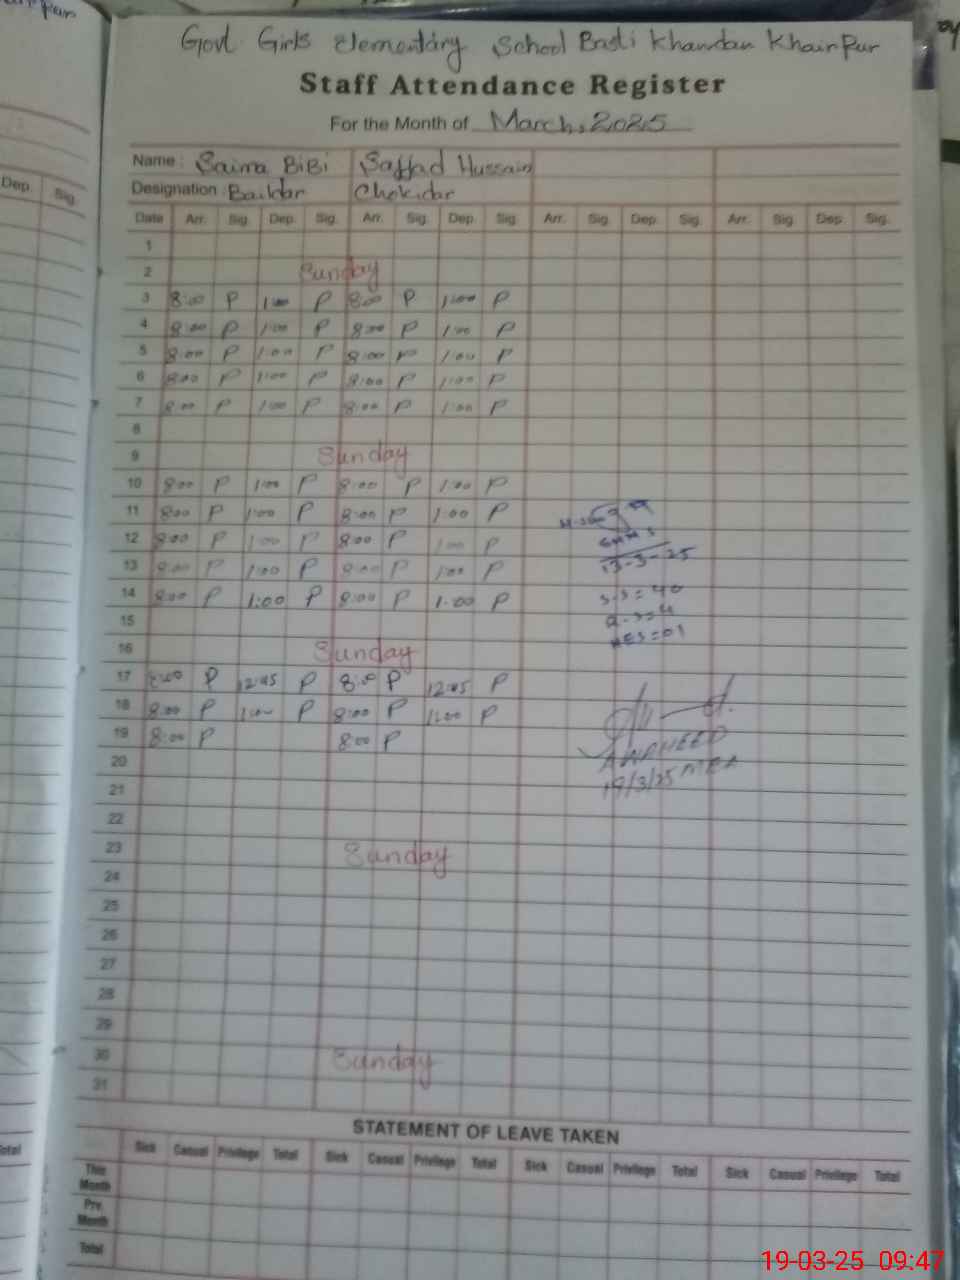 Govt Girls Elementary School Basti Khandan Khairpur
Staff Attendance Register
For the Month of March, 2025
Name : Saima BiBi Sajjad Hussain
Designation : Baildar Chokidar
Date Arr. Sig. Dep. Sig. Arr. Sig. Dep. Sig. Arr. Sig. Dep. Sig. Arr. Sig. Dep. Sig.
1
2 Sunday
3 8:00 P 1:00 P 8:00 P 1:00 P
4 8:00 P 1:00 P 8:00 P 1:00 P
5 8:00 P 1:00 P 8:00 P 1:00 P
6 8:00 P 1:00 P 8:00 P 1:00 P
7 8:00 P 1:00 P 8:00 P 1:00 P
8
9 Sunday
10 8:00 P 1:00 P 8:00 P 1:00 P
11 8:00 P 1:00 P 8:00 P 1:00 P
12 8:00 P 1:00 P 8:00 P 1:00 P
13-3-25
13 8:00 P 1:00 P 8:00 P 1:00 P
14 8:00 P 1:00 P 8:00 P 1:00 P
S.S = 40
15
16 Sunday
17 8:00 P 12:45 P 8:00 P 12:45 P
18 8:00 P 1:00 P 8:00 P 1:00 P
19 8:00 P 8:00 P
AWAHEED
19/3/25 MEA
20
21
22
23 Sunday
24
25
26
27
28
29
30 Sunday
31
STATEMENT OF LEAVE TAKEN
Sick Casual Privilege Total Sick Casual Privilege Total Sick Casual Privilege Total Sick Casual Privilege Total
This Month
Pre. Month
Total
Dep. Sig.
Total
19-03-25 09:47